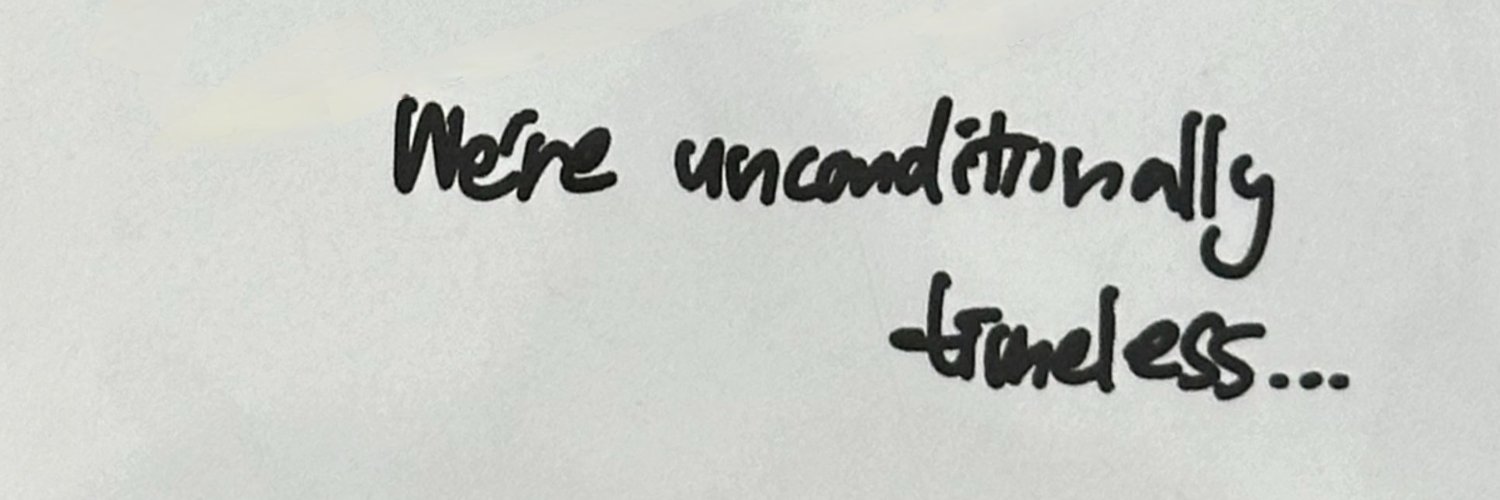 We're unconditionally
timeless...